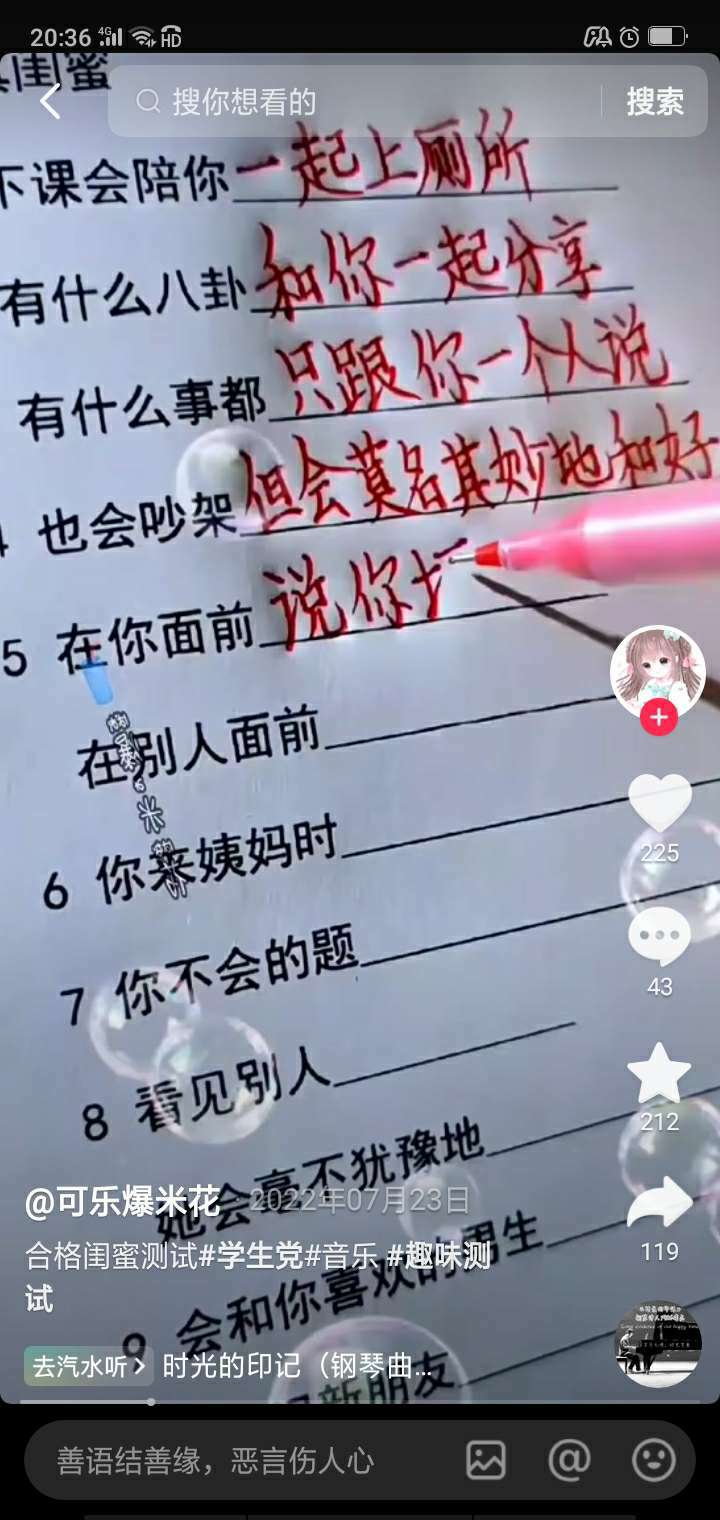 20:36 4G HD
闺蜜
搜你想看的 搜索
下课会陪你一起上厕所
有什么八卦和你一起分享
有什么事都只跟你一个人说
4 也会吵架但会莫名其妙地和好
5 在你面前说你
在别人面前
6 你来姨妈时
7 你不会的题
8 看见别人
她会毫不犹豫地
9 会和你喜欢的男生
新朋友
225
43
212
119
@可乐爆米花 · 2022年07月23日
合格闺蜜测试#学生党#音乐 #趣味测
试
去汽水听 时光的印记（钢琴曲...
善语结善缘，恶言伤人心